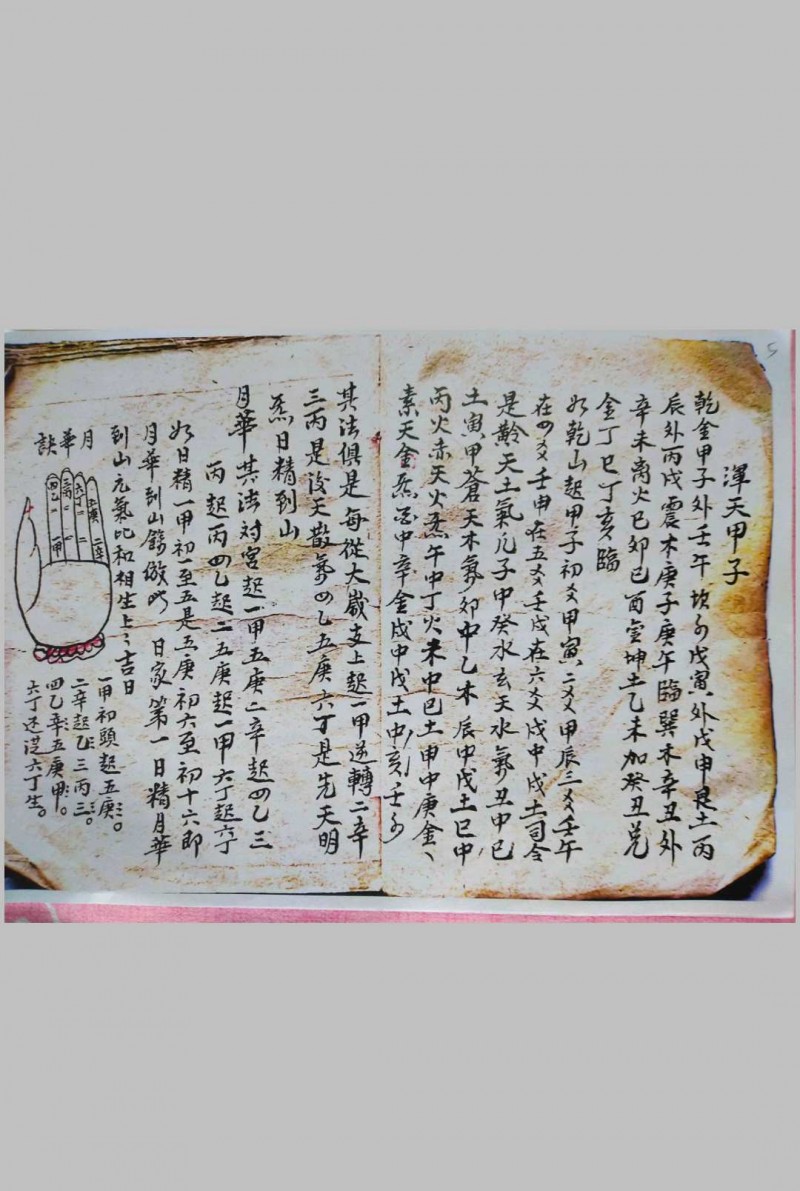 5
渾天甲子
乾金甲子外壬午坎水戊寅外戊申艮土丙
辰外丙戌震木庚子庚午臨巽木辛丑外
辛未離火巳卯巳酉坤土乙未加癸丑兌
金丁巳丁亥臨
如乾山起甲子初爻甲寅二爻甲辰三爻壬午
在四爻壬申在五爻壬戌在六爻戌中戊土司令
是黅天土氣凡子中癸水玄天水氣丑中巳
土寅甲蒼天木氣卯中乙木辰中戊土巳中
丙火赤天火炁午中丁火未中巳土申中庚金
素天金炁酉中辛金戌中戊土中亥壬水
其法俱是每從大歲支上起一甲逆轉二辛
三丙是後天散氣四乙五庚六丁是先天明
炁日精到山
月華 其法対宮起一甲五庚二辛起四乙三
丙起丙四乙起二五庚起一甲六丁起六丁
如日精一甲初一至五是五庚初六至初十六即
月華到山餘倣此 日家第一日精月華
到山元氣比和相生上々吉日
月華訣
四乙 三丙 六丁 五庚
一甲 二辛
一甲初頭起五庚。
二辛起乙三丙三。
四乙辛五庚甲。
六丁还從六丁生。